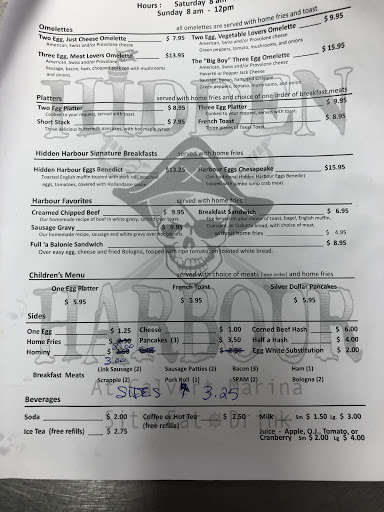 Hours : Saturday 8 am
Sunday 8 am - 12pm
Omelettes all omelettes are served with home fries and toast
Two Egg, Just Cheese Omelette $ 7.95
American, Swiss and/or Provolone cheese
Three Egg, Meat Lovers Omelette $13.95
American, Swiss and/or Provolone cheese
Sausage, bacon, ham, chopped pork roll with mushrooms
and onions
Two Egg, Vegetable Lovers Omelette $ 9.95
American, Swiss and/or Provolone cheese
Green peppers, tomato, mushrooms, and onions
The "Big Boy" Three Egg Omelette $ 15.95
American, Swiss and/or Provolone cheese
Havarti or Pepper Jack Cheese
Sausage, bacon, ham, scrapple
Green peppers, tomato, mushrooms, and onions
Platters served with home fries and choice of one order of breakfast meats
Two Egg Platter $ 8.95
Cooked to your request, served with toast.
Short Stack $ 7.95
Three delicious buttermilk pancakes, with hot maple syrup
Three Egg Platter $ 9.95
Cooked to your request, served with toast.
French Toast $ 8.95
Three pieces of Texas Toast
Hidden Harbour Signature Breakfasts served with home fries
Hidden Harbour Eggs Benedict $13.25
Toasted English muffin topped with pork roll, poached
eggs, tomatoes, covered with Hollandaise sauce
Harbour Eggs Chesapeake $15.95
Our traditional Hidden Harbour Eggs Benedict
topped with jumbo lump crab meat
Harbour Favorites served with home fries
Creamed Chipped Beef $ 9.95
Our homemade recipe of beef in white gravy, topped over toast.
Sausage Gravy $ 9.95
Our homemade recipe, sausage and white gravy over hot biscuits
Breakfast Sandwich $ 6.95
Egg served on your choice of toast, bagel, English muffin,
Croissant, or Ciabatta bread, with choice of meat.
without home fries $ 4.95
Full 'a Balonie Sandwich $ 8.95
Over easy egg, cheese and fried Bologna, topped with ripe tomato, on toasted white bread.
Children's Menu served with choice of meats (one order) and home fries
One Egg Platter French Toast Silver Dollar Pancakes
$ 5.95 $ 5.95 $ 5.95
Sides
One Egg $ 1.25 Cheese $ 1.00 Corned Beef Hash $ 6.00
Home Fries Pancakes (3) $ 3.50 Half a Hash $ 4.00
Hominy 3.00 Egg White Substitution $ 2.00
Breakfast Meats Link Sausage (2) Sausage Patties (2) Bacon (3) Ham (1)
Scrapple (2) Pork Roll (1) SPAM (2) Bologna (2)
SIDES $ 3.25
Beverages
Soda $ 2.00 Coffee or Hot Tea $ 2.50 Milk Sm $ 1.50 Lg $ 3.00
(free refills)
Ice Tea (free refills) $ 2.75 Juice - Apple, O.J., Tomato, or
Cranberry Sm $ 2.00 Lg $ 4.00
HIDDEN
HARBOUR